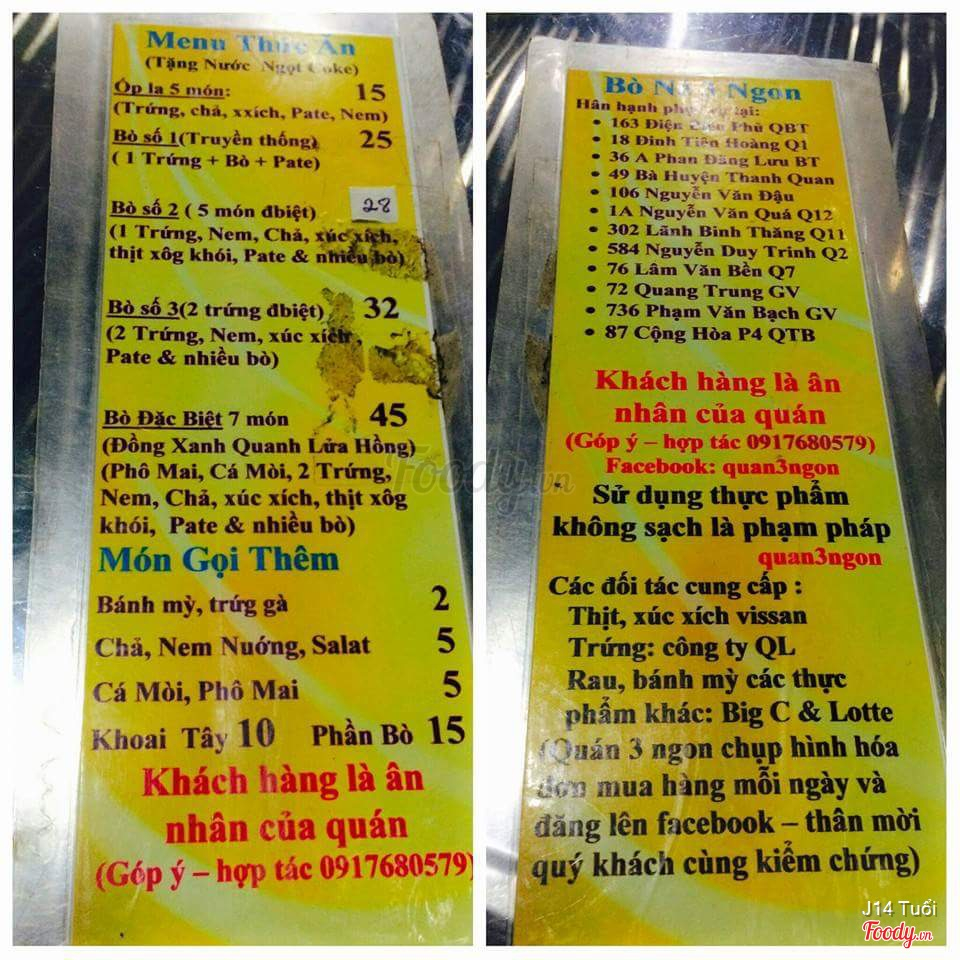 Menu Thức Ăn
(Tặng Nước Ngọt Coke)
Ốp la 5 món: 15
(Trứng, chả, xxích, Pate, Nem)
Bò số 1(Truyền thống) 25
( 1 Trứng + Bò + Pate)
Bò số 2 ( 5 món đbiệt) 28
(1 Trứng, Nem, Chả, xúc xích,
thịt xôg khói, Pate & nhiều bò)
Bò số 3(2 trứng đbiệt) 32
(2 Trứng, Nem, xúc xích,
Pate & nhiều bò)
Bò Đặc Biệt 7 món 45
(Đồng Xanh Quanh Lửa Hồng)
(Phô Mai, Cá Mòi, 2 Trứng,
Nem, Chả, xúc xích, thịt xôg
khói, Pate & nhiều bò)
Món Gọi Thêm
Bánh mỳ, trứg gà 2
Chả, Nem Nướng, Salat 5
Cá Mòi, Phô Mai 5
Khoai Tây 10 Phần Bò 15
Khách hàng là ân
nhân của quán
(Góp ý – hợp tác 0917680579)
Bò Ngon
Hân hạnh phục vụ tại:
• 163 Điện Biên Phủ QBT
• 18 Đinh Tiên Hoàng Q1
• 36 A Phan Đăng Lưu BT
• 49 Bà Huyện Thanh Quan
• 106 Nguyễn Văn Đậu
• 1A Nguyễn Văn Quá Q12
• 302 Lãnh Binh Thăng Q11
• 584 Nguyễn Duy Trinh Q2
• 76 Lâm Văn Bền Q7
• 72 Quang Trung GV
• 736 Phạm Văn Bạch GV
• 87 Cộng Hòa P4 QTB
Khách hàng là ân
nhân của quán
(Góp ý – hợp tác 0917680579)
Facebook: quan3ngon
Sử dụng thực phẩm
không sạch là phạm pháp
quan3ngon
Các đối tác cung cấp :
Thịt, xúc xích vissan
Trứng: công ty QL
Rau, bánh mỳ các thực
phẩm khác: Big C & Lotte
(Quán 3 ngon chụp hình hóa
đơn mua hàng mỗi ngày và
đăng lên facebook – thân mời
quý khách cùng kiểm chứng)
Foody.vn
J14 Tuổi
Foody.vn